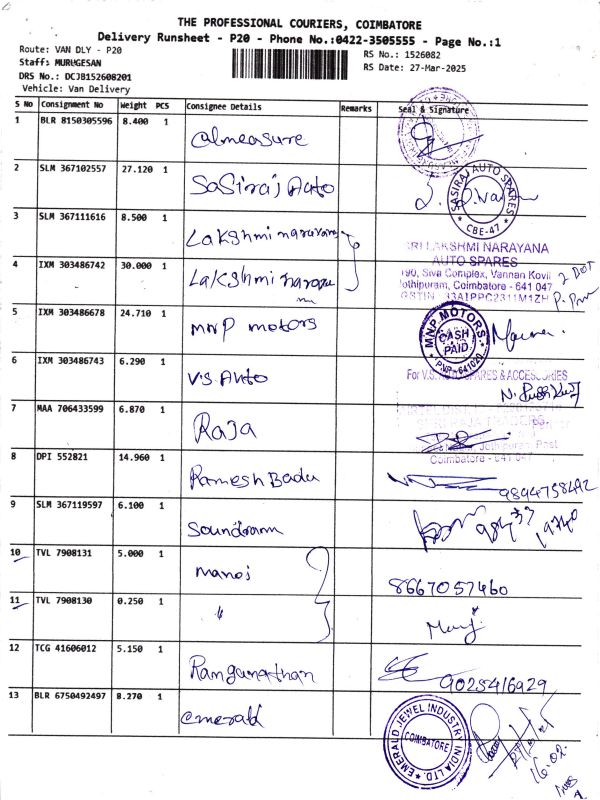 THE PROFESSIONAL COURIERS, COIMBATORE
Delivery Runsheet - P20 - Phone No.:0422-3505555 - Page No.:1
Route: VAN DLY - P20
Staff: MURUGESAN
DRS No.: DCJB152608201
Vehicle: Van Delivery
RS No.: 1526082
RS Date: 27-Mar-2025
S No Consignment No Weight PCS Consignee Details Remarks Seal & Signature
1 BLR 8150305596 8.400 1 almeasure
2 SLM 367102557 27.120 1 SaSiraj Auto
SASIRAJ AUTO SPARES
* CBE-47 *
3 SLM 367111616 8.500 1 Lakshmi narayana
SRI LAKSHMI NARAYANA
AUTO SPARES
190, Siva Complex, Vannan Kovil
Jothipuram, Coimbatore - 641 047
GSTIN : 33AIPPC2311M1ZH
4 IXM 303486742 30.000 1 Lakshmi
5 IXM 303486678 24.710 1 MNP motors
MNP MOTORS
CASH
PAID
PNP-641020
6 IXM 303486743 6.290 1 V.S Auto
For V.S. AUTO SPARES & ACCESSORIES
7 MAA 706433599 6.870 1 Raja
Jothipuram Post
Coimbatore - 641 047
8 DPI 552821 14.960 1 Ramesh Badu
9894758492
9 SLM 367119597 6.100 1 Soundram
10 TVL 7908131 5.000 1 Manoj
8667057460
11 TVL 7908130 0.250 1 "
Manoj
12 TCG 41606012 5.150 1 Ranganathan
9025416929
13 BLR 6750492497 8.270 1 emerald
EMERALD JEWEL INDUSTRY INDIA LTD.
COIMBATORE
16.02